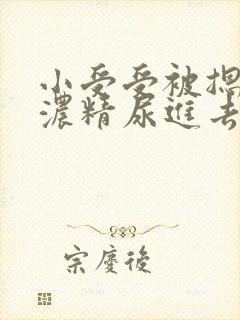 小受受被摁
濃精尿進去
宗慶後